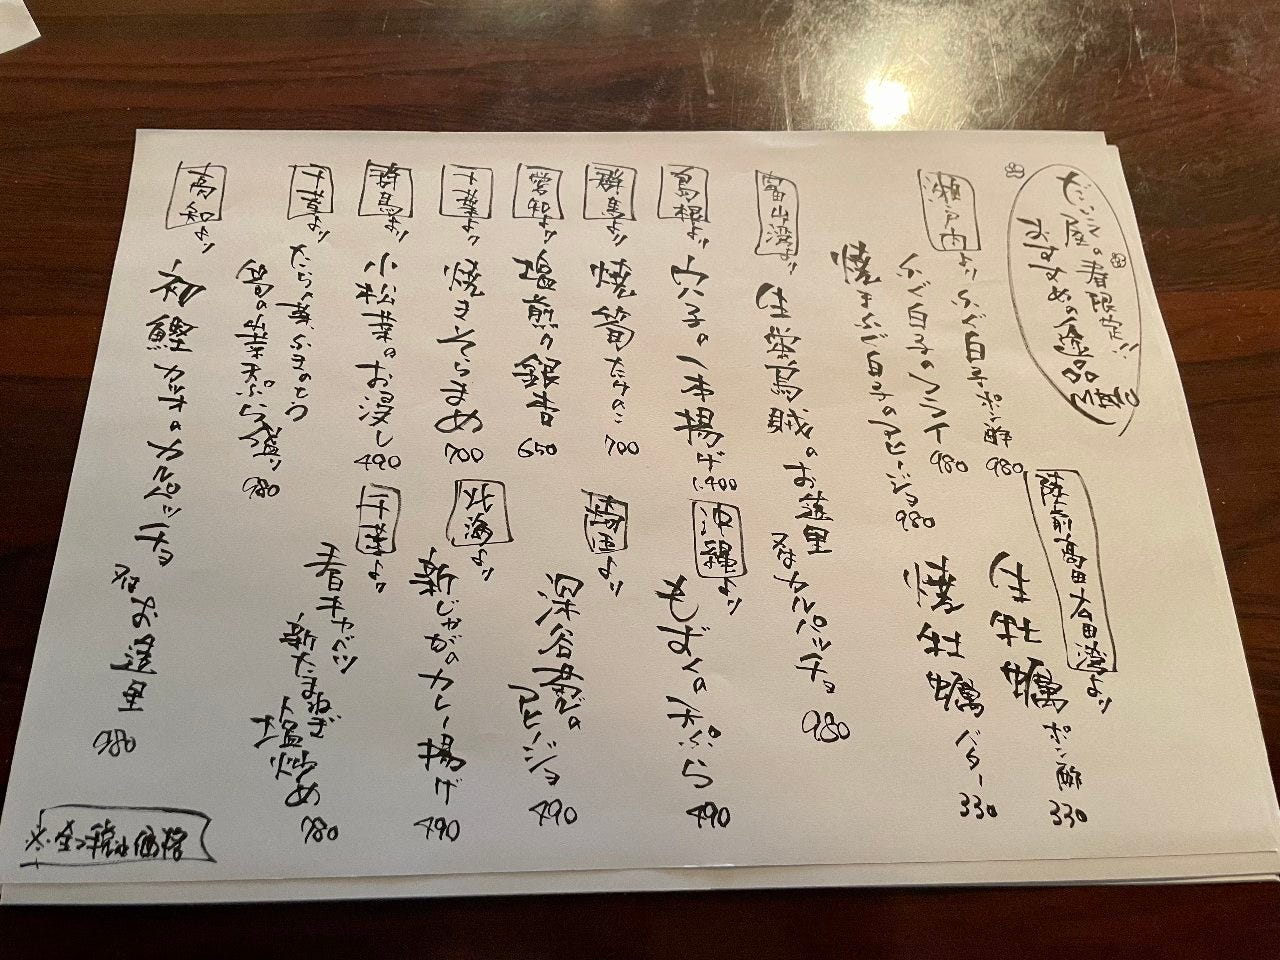 だいこく屋の春限定!!
おすすめの逸品
瀬戸内より ふぐ白子ポン酢 980
ふぐ白子のフライ 980
焼きふぐ白子のアヒージョ 980
陸前高田広田湾より
生牡蠣ポン酢 330
焼牡蠣バター 330
富山湾より 生蛍烏賊のお造里
又はカルパッチョ 980
島根より 穴子の一本揚げ 1,400
沖縄より もずくの天ぷら 490
群馬より 焼筍たけのこ 700
埼玉より 深谷ねぎのアヒージョ 490
愛知より 塩煎り銀杏 650
千葉より 焼きそらまめ 700
北海より 新じゃがのカレー揚げ 490
群馬より 小松菜のお浸し 490
千葉より 春キャベツ
新たまねぎ
塩炒め 780
千葉より たらの芽ふきのとう
筍の山菜天ぷら盛り 980
高知より 初鰹カツオのカルパッチョ
又はお造里 980
※全て税込価格